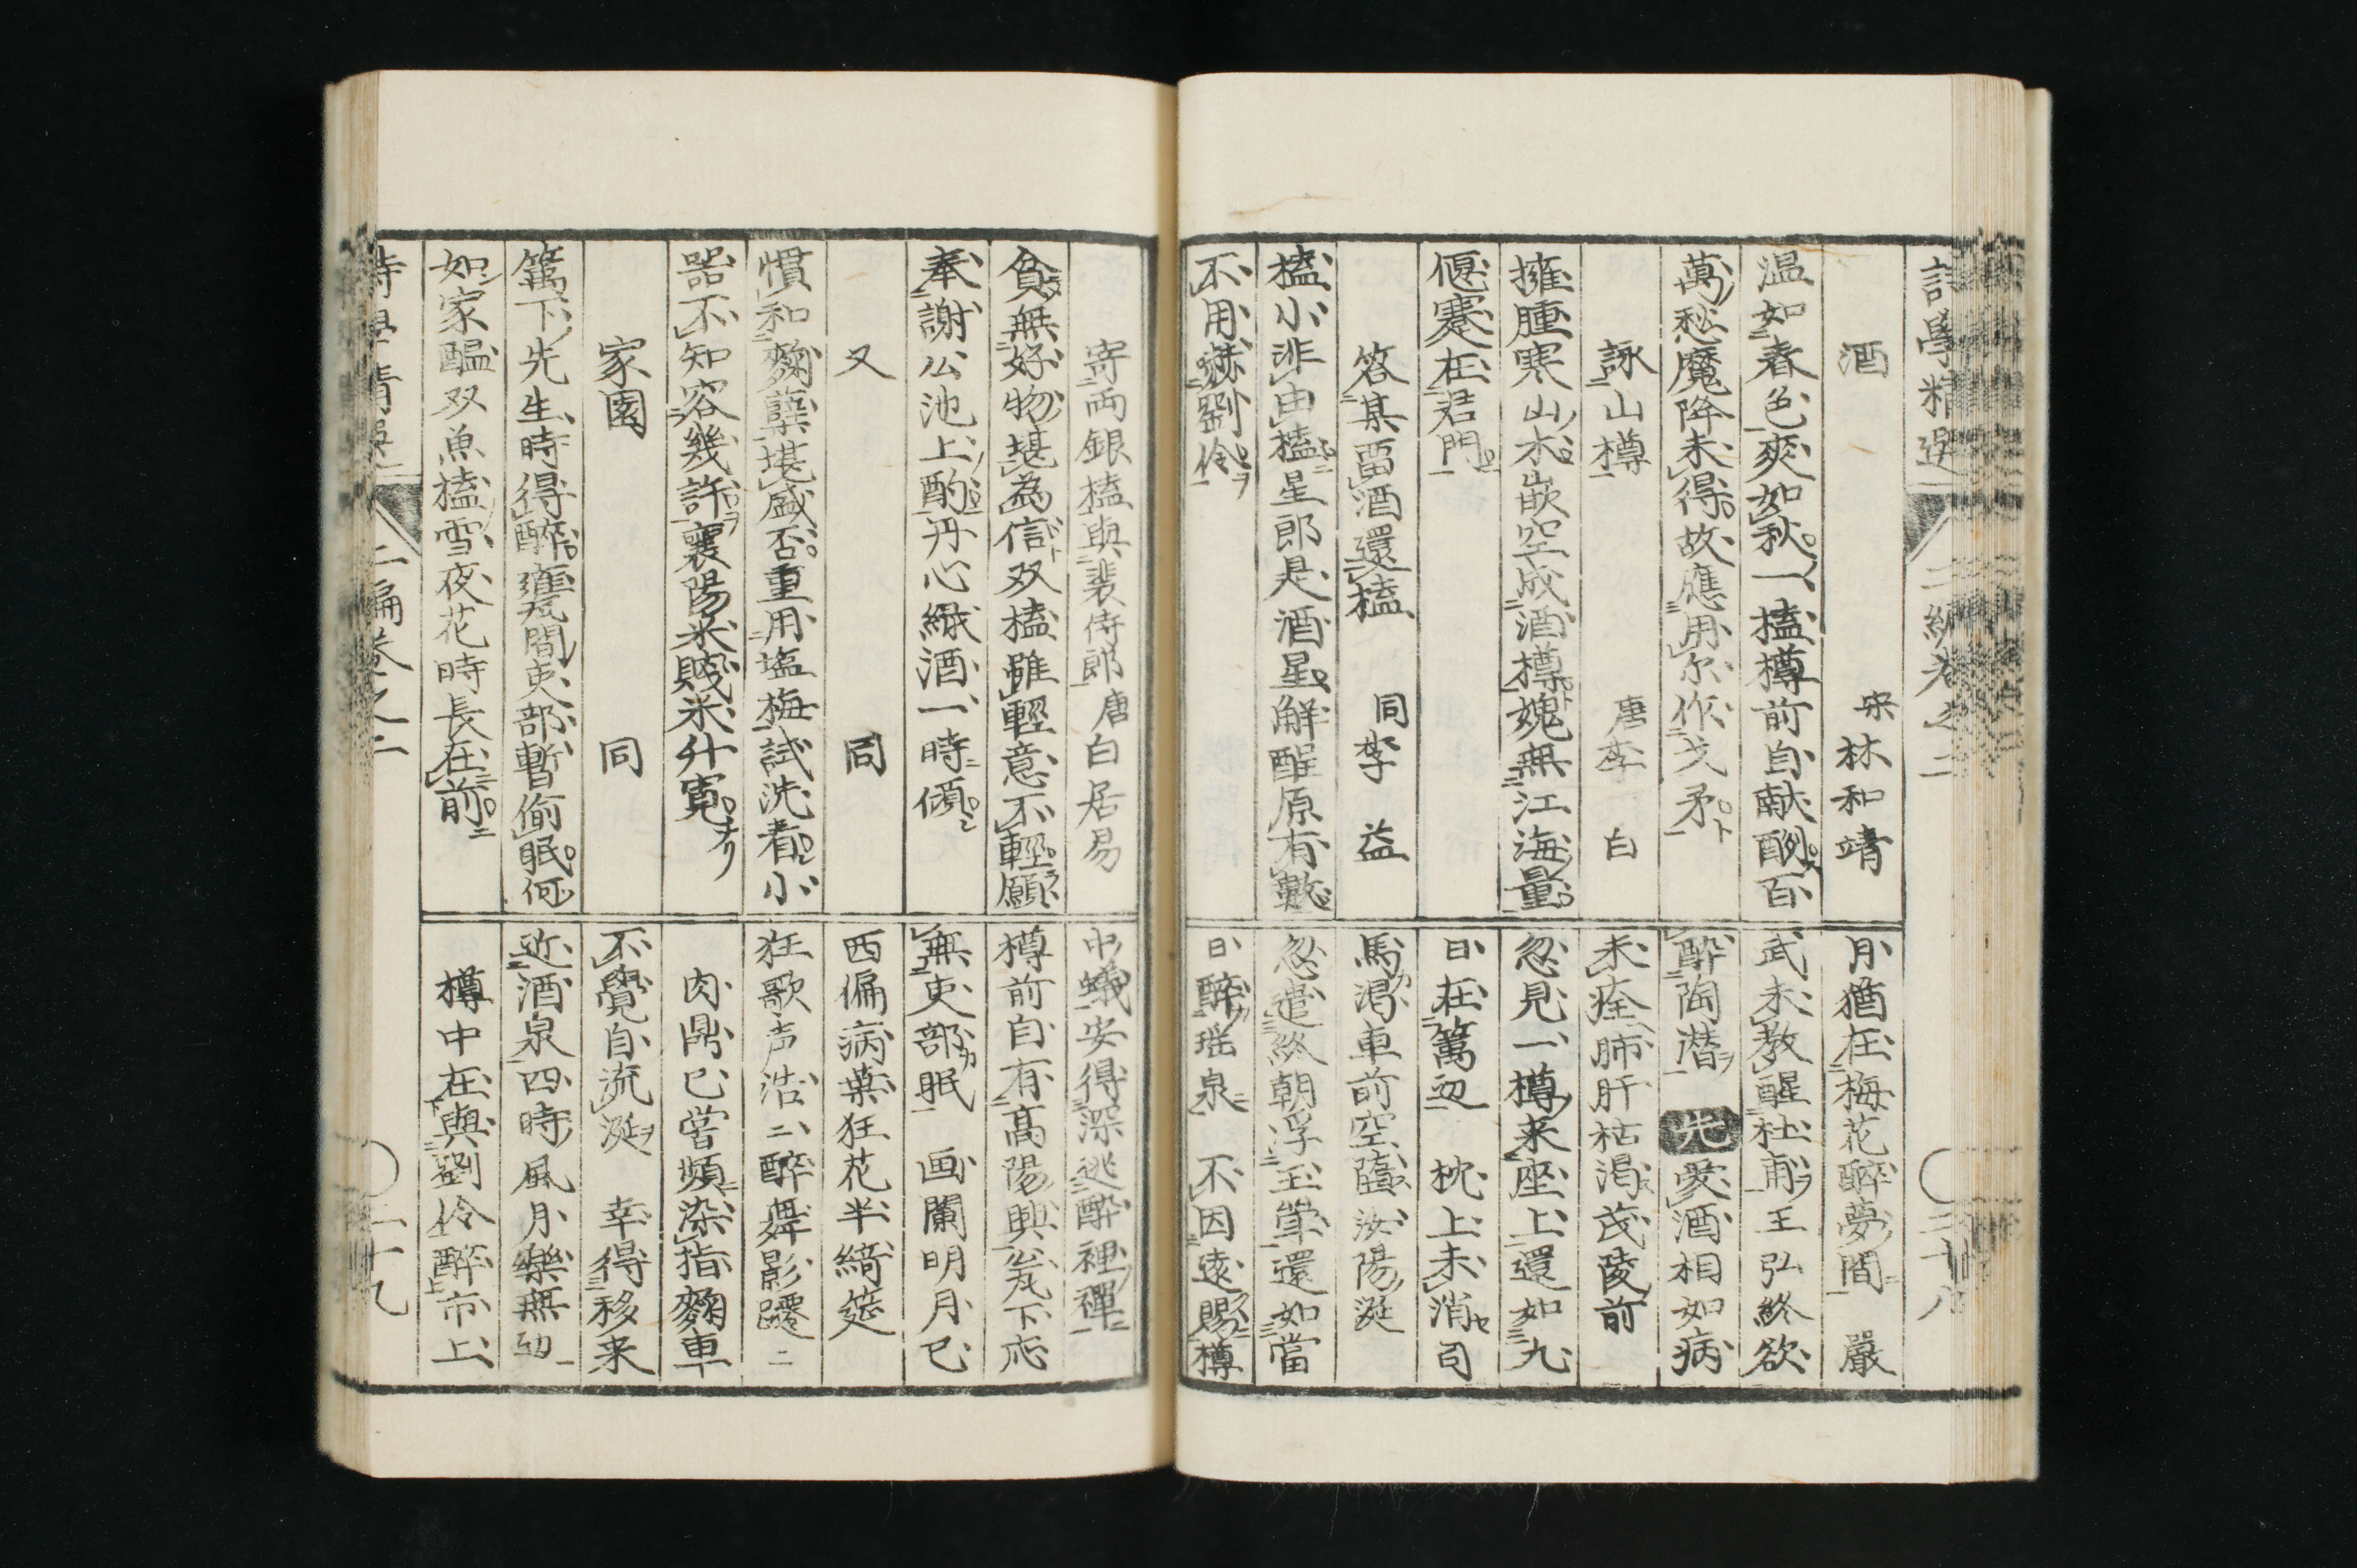 詩學精選
二編巻之二
二十八
酒
宋 林和靖
温如春色爽如秋一榼樽前自献酬百
萬愁魔降未得故應用尔作戈矛
詠山樽
唐李 白
擁腫寒山木嵌空成酒樽媿無江海量
偃蹇在君門
答某畱酒還榼
同李 益
榼小非由榼星郎是酒星解酲原有數
不用嚇劉伶
月猶在梅花醉夢間 嚴
武未教醒杜甫王弘終欲
酔陶潜 先 愛酒相如病
未痊肺肝枯渇茂陵前
忽見一樽来座上還如九
日在篱辺 枕上未消司
馬渇車前空墮汝陽涎
忽遣終朝浮玉斝還如當
日醉瑶泉 不因遠賜樽
寄両銀榼與裴侍郎
唐白居易
貧無好物堪為信双榼雖輕意不輕願
奉謝公池上酌丹心緑酒一時傾
又
同
慣和麹糵堪盛否重用塩梅試洗看小
器不知容幾許襄陽米賎米升寛
家園
同
篱下先生時得醉甕間吏部暫偷眠何
如家醞双魚榼雪夜花時長在前
中蟻安得深逃酔裡禪
樽前自有髙陽興瓮下応
無吏部眠 画闌明月已
西偏病葉狂花半綺筵
狂歌声浩二醉舞影躚二
肉鼎已嘗頻染指麹車
不覺自流涎 幸得移来
近酒泉四時風月樂無辺
樽中在與劉伶醉市上
二編巻之二
二十九